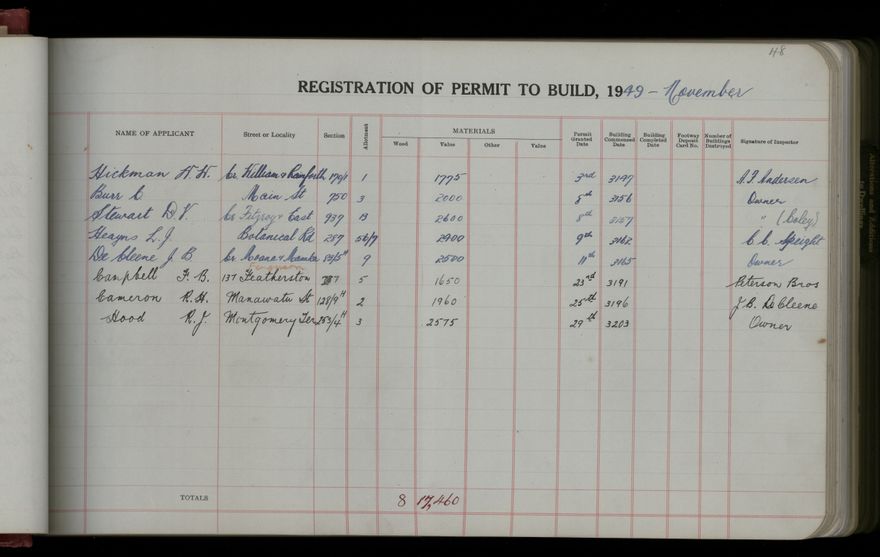 48
REGISTRATION OF PERMIT TO BUILD, 1949 - November
NAME OF APPLICANT Street or Locality Section Allotment MATERIALS Permit Granted Date Building Commenced Date Building Completed Date Footway Deposit Card No. Number of Buildings Destroyed Signature of Inspector
Wood Value Other Value
Hickman H. H. Cr 1 1775 3rd 3147 A. F. Andersen
Burr C Main St 750 3 2000 8th 3156 Owner
Stewart D V. Cr Fitzroy & East 937 B 2600 8th 3157 " (Boley)
L. J. Botanical Rd 287 56/7 2900 9th 3162 C. C. Speight
De Cleene J B Cr Moana & 9 2500 11th 3165 Owner
Ferguson
Campbell F. B. 137 Featherston 5 1650 23rd 3191 Peterson Bros
Cameron R. H. Manawatu St 128/9H 2 1960 25th 3196 J. B. De Cleene
Hood R. J. Montgomery Ter 253/4H 3 2575 29th 3203 Owner
TOTALS 8 17,460
Alterations and Additions
to Dwellings